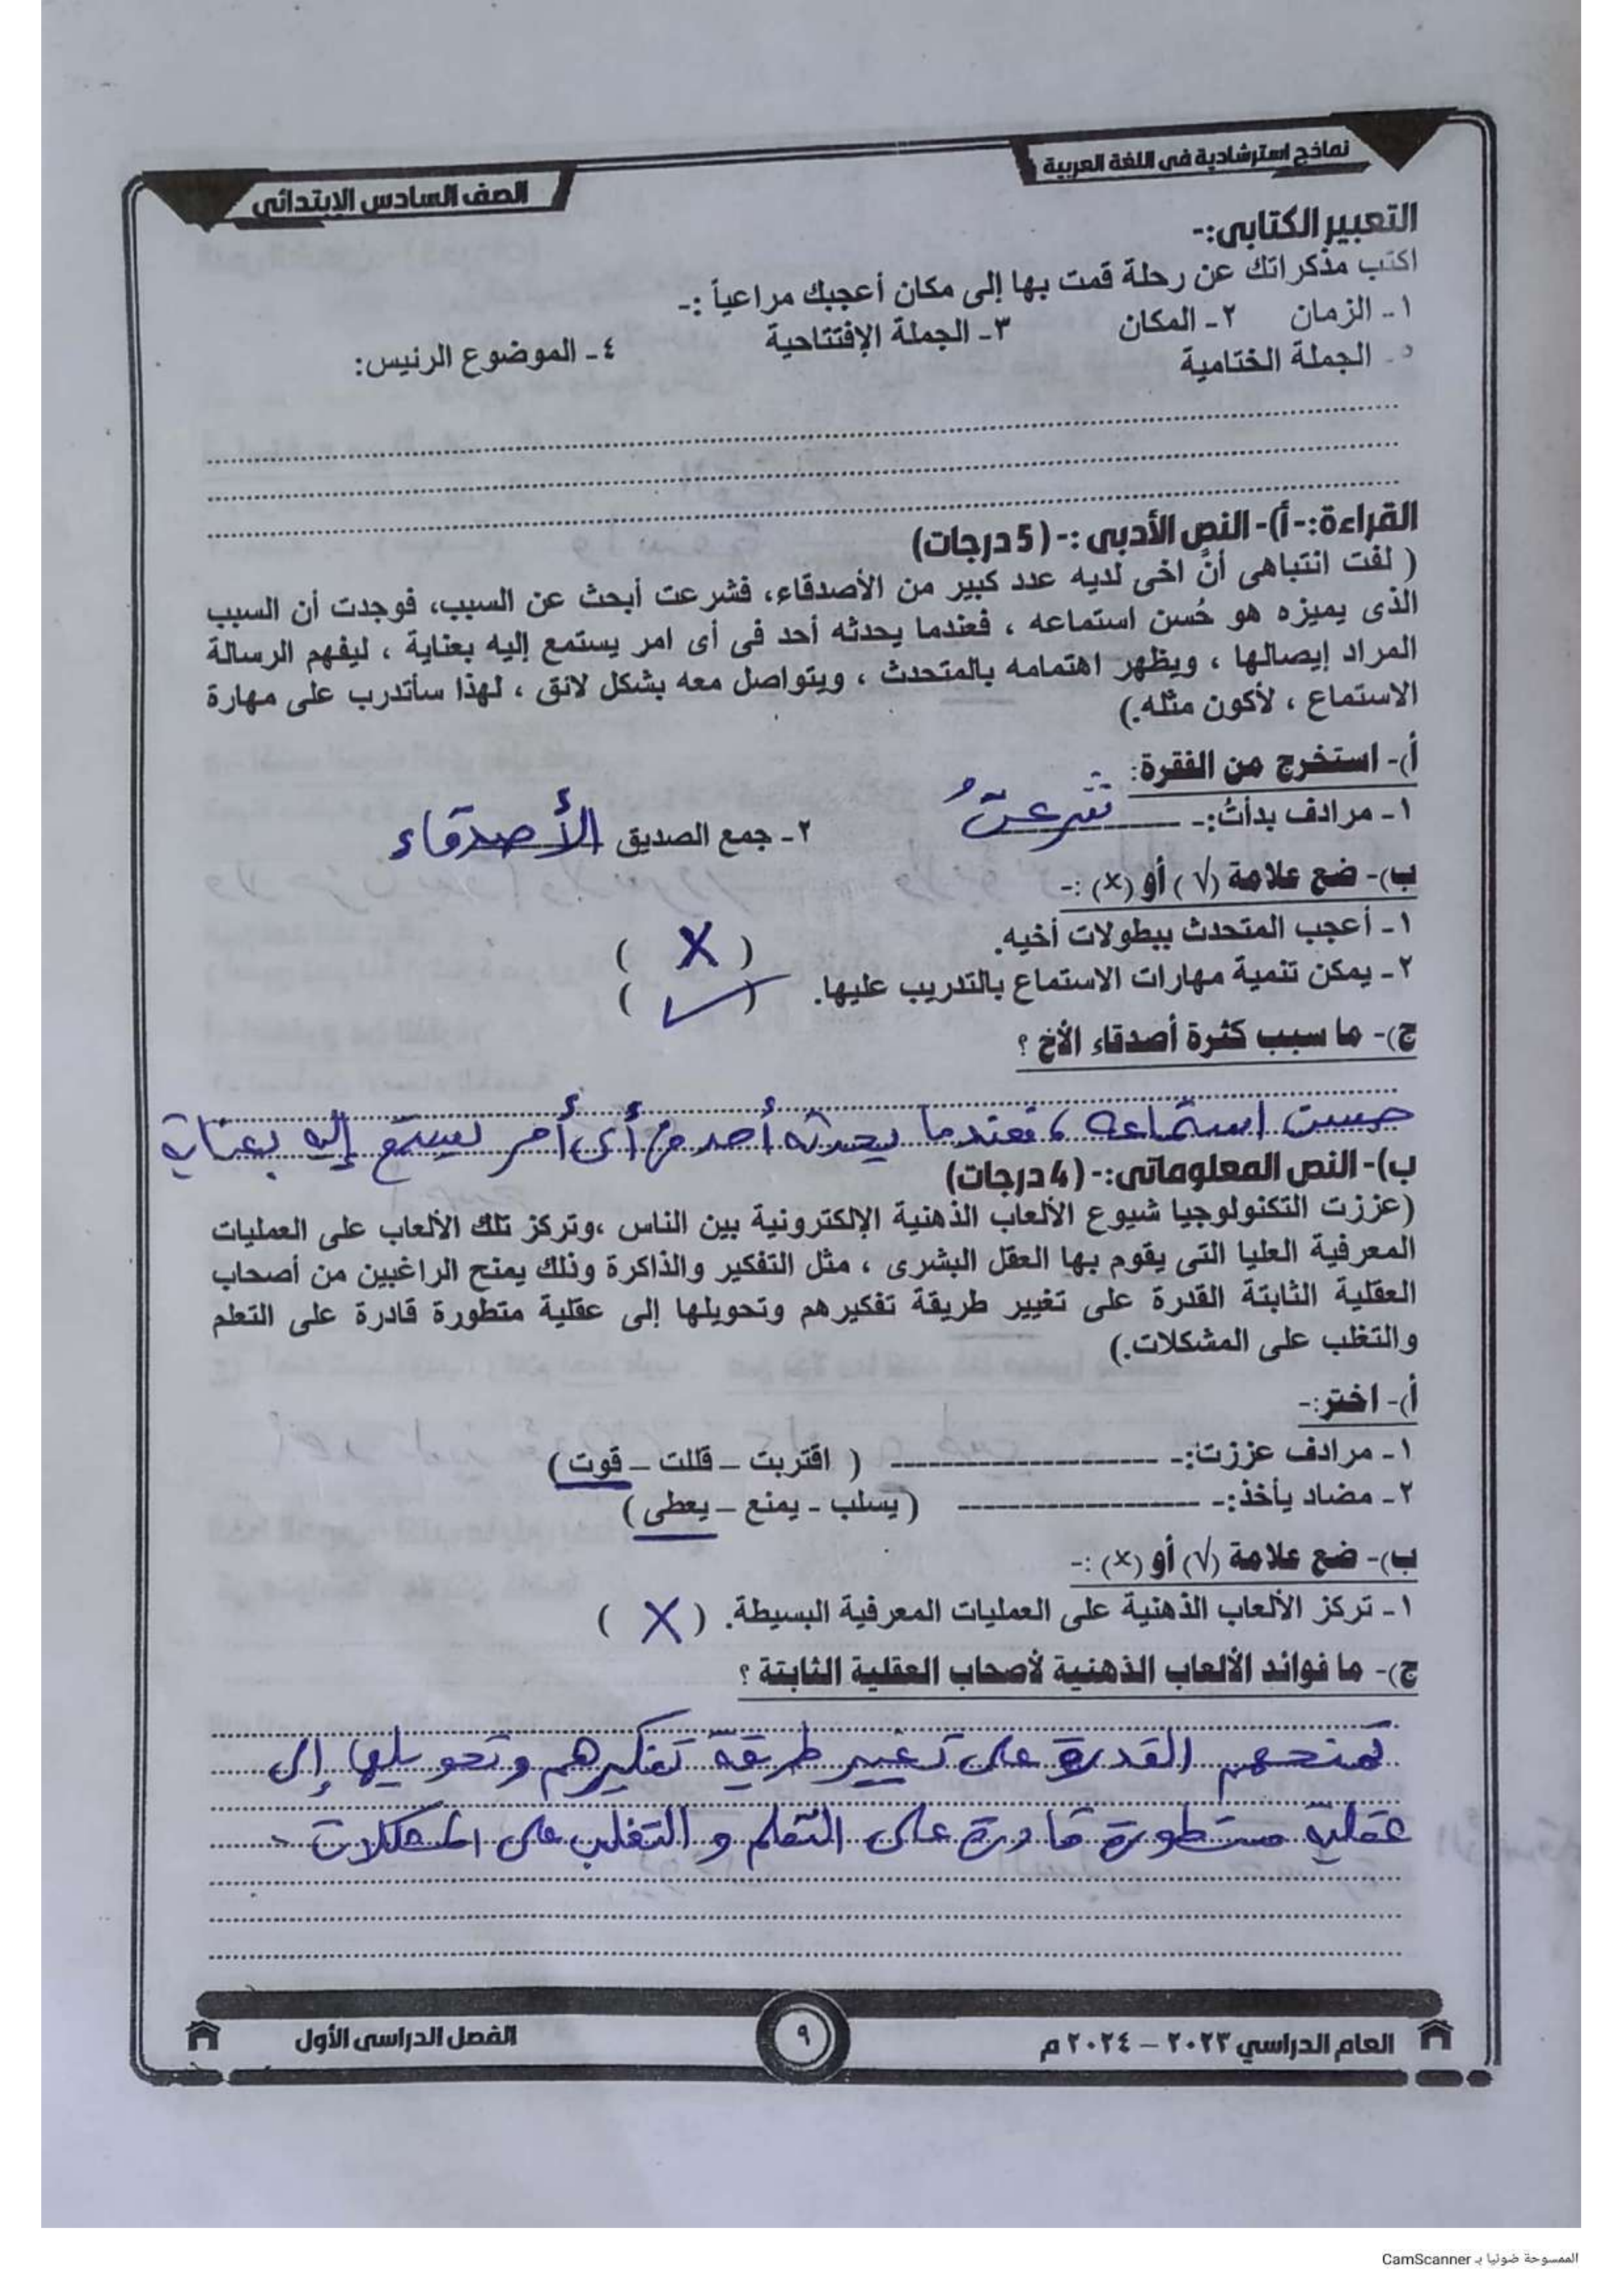 نماذج استرشادية فى اللغة العربية
الصف السادس الإبتدائى
التعبير الكتابى:-
اكتب مذكراتك عن رحلة قمت بها إلى مكان أعجبك مراعياً :-
١- الزمان ٢- المكان ٣- الجملة الإفتتاحية ٤- الموضوع الرئيس:
٥- الجملة الختامية
القراءة:- أ)- النص الأدبى :- (5 درجات)
( لفت انتباهى أنَّ اخى لديه عدد كبير من الأصدقاء، فشرعت أبحث عن السبب، فوجدت أن السبب
الذى يميزه هو حُسن استماعه ، فعندما يحدثه أحد فى أى امر يستمع إليه بعناية ، ليفهم الرسالة
المراد إيصالها ، ويظهر اهتمامه بالمتحدث ، ويتواصل معه بشكل لائق ، لهذا سأتدرب على مهارة
الاستماع ، لأكون مثله.)
أ)- استخرج من الفقرة:
١- مرادف بدأتُ:- شرعتُ ٢- جمع الصديق الأصدقاء
ب)- ضع علامة (√) أو (×) :-
١- أعجب المتحدث ببطولات أخيه. ( X )
٢- يمكن تنمية مهارات الاستماع بالتدريب عليها. ( ✓ )
ج)- ما سبب كثرة أصدقاء الأخ ؟
حسن استماعه ، فعندما يحدثه أحد فى أى أمر يستمع إليه بعناية
ب)- النص المعلوماتى:- (4 درجات)
(عززت التكنولوجيا شيوع الألعاب الذهنية الإلكترونية بين الناس ،وتركز تلك الألعاب على العمليات
المعرفية العليا التى يقوم بها العقل البشرى ، مثل التفكير والذاكرة وذلك يمنح الراغبين من أصحاب
العقلية الثابتة القدرة على تغيير طريقة تفكيرهم وتحويلها إلى عقلية متطورة قادرة على التعلم
والتغلب على المشكلات.)
أ)- اختر:-
١- مرادف عززت:- ( اقتربت – قللت – قوت )
٢- مضاد يأخذ:- ( يسلب - يمنع – يعطى )
ب)- ضع علامة (√) أو (×) :-
١- تركز الألعاب الذهنية على العمليات المعرفية البسيطة. ( X )
ج)- ما فوائد الألعاب الذهنية لأصحاب العقلية الثابتة ؟
تمنحهم القدرة على تغيير طريقة تفكيرهم وتحويلها إلى
عقلية متطورة قادرة على التعلم و التغلب على المشكلات .
العام الدراسي ٢٠٢٣ – ٢٠٢٤ م
٩
الفصل الدراسى الأول
الممسوحة ضوئيا بـ CamScanner